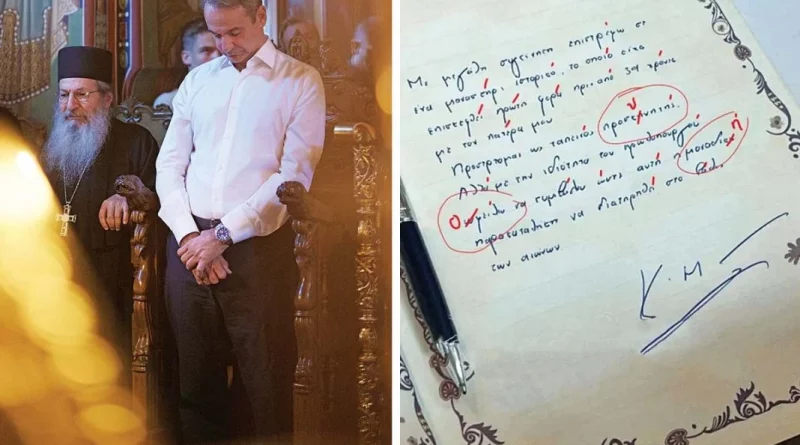 Με μεγάλη συγκίνηση επιστρέφω σε
ένα μοναστήρι ιστορικό, το οποίο είχα
επισκεφθεί πρώτη φορά πριν από 34 χρόνια
με τον πατέρα μου
Προσέρχομαι ως ταπεινός προσκυνητής.
Αλλά με την ιδιότητα του πρωθυπουργού
να συμβάλω ώστε αυτή η μοναδική
παρακαταθήκη να διατηρηθεί στο βάθος
των αιώνων
Κ.Μ